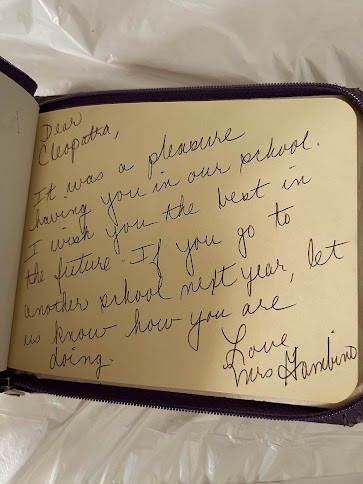 Dear
Cleopatra,
It was a pleasure
having you in our school.
I wish you the best in
the future. If you go to
another school next year, let
us know how you are
doing.
Love
Mrs Gambino